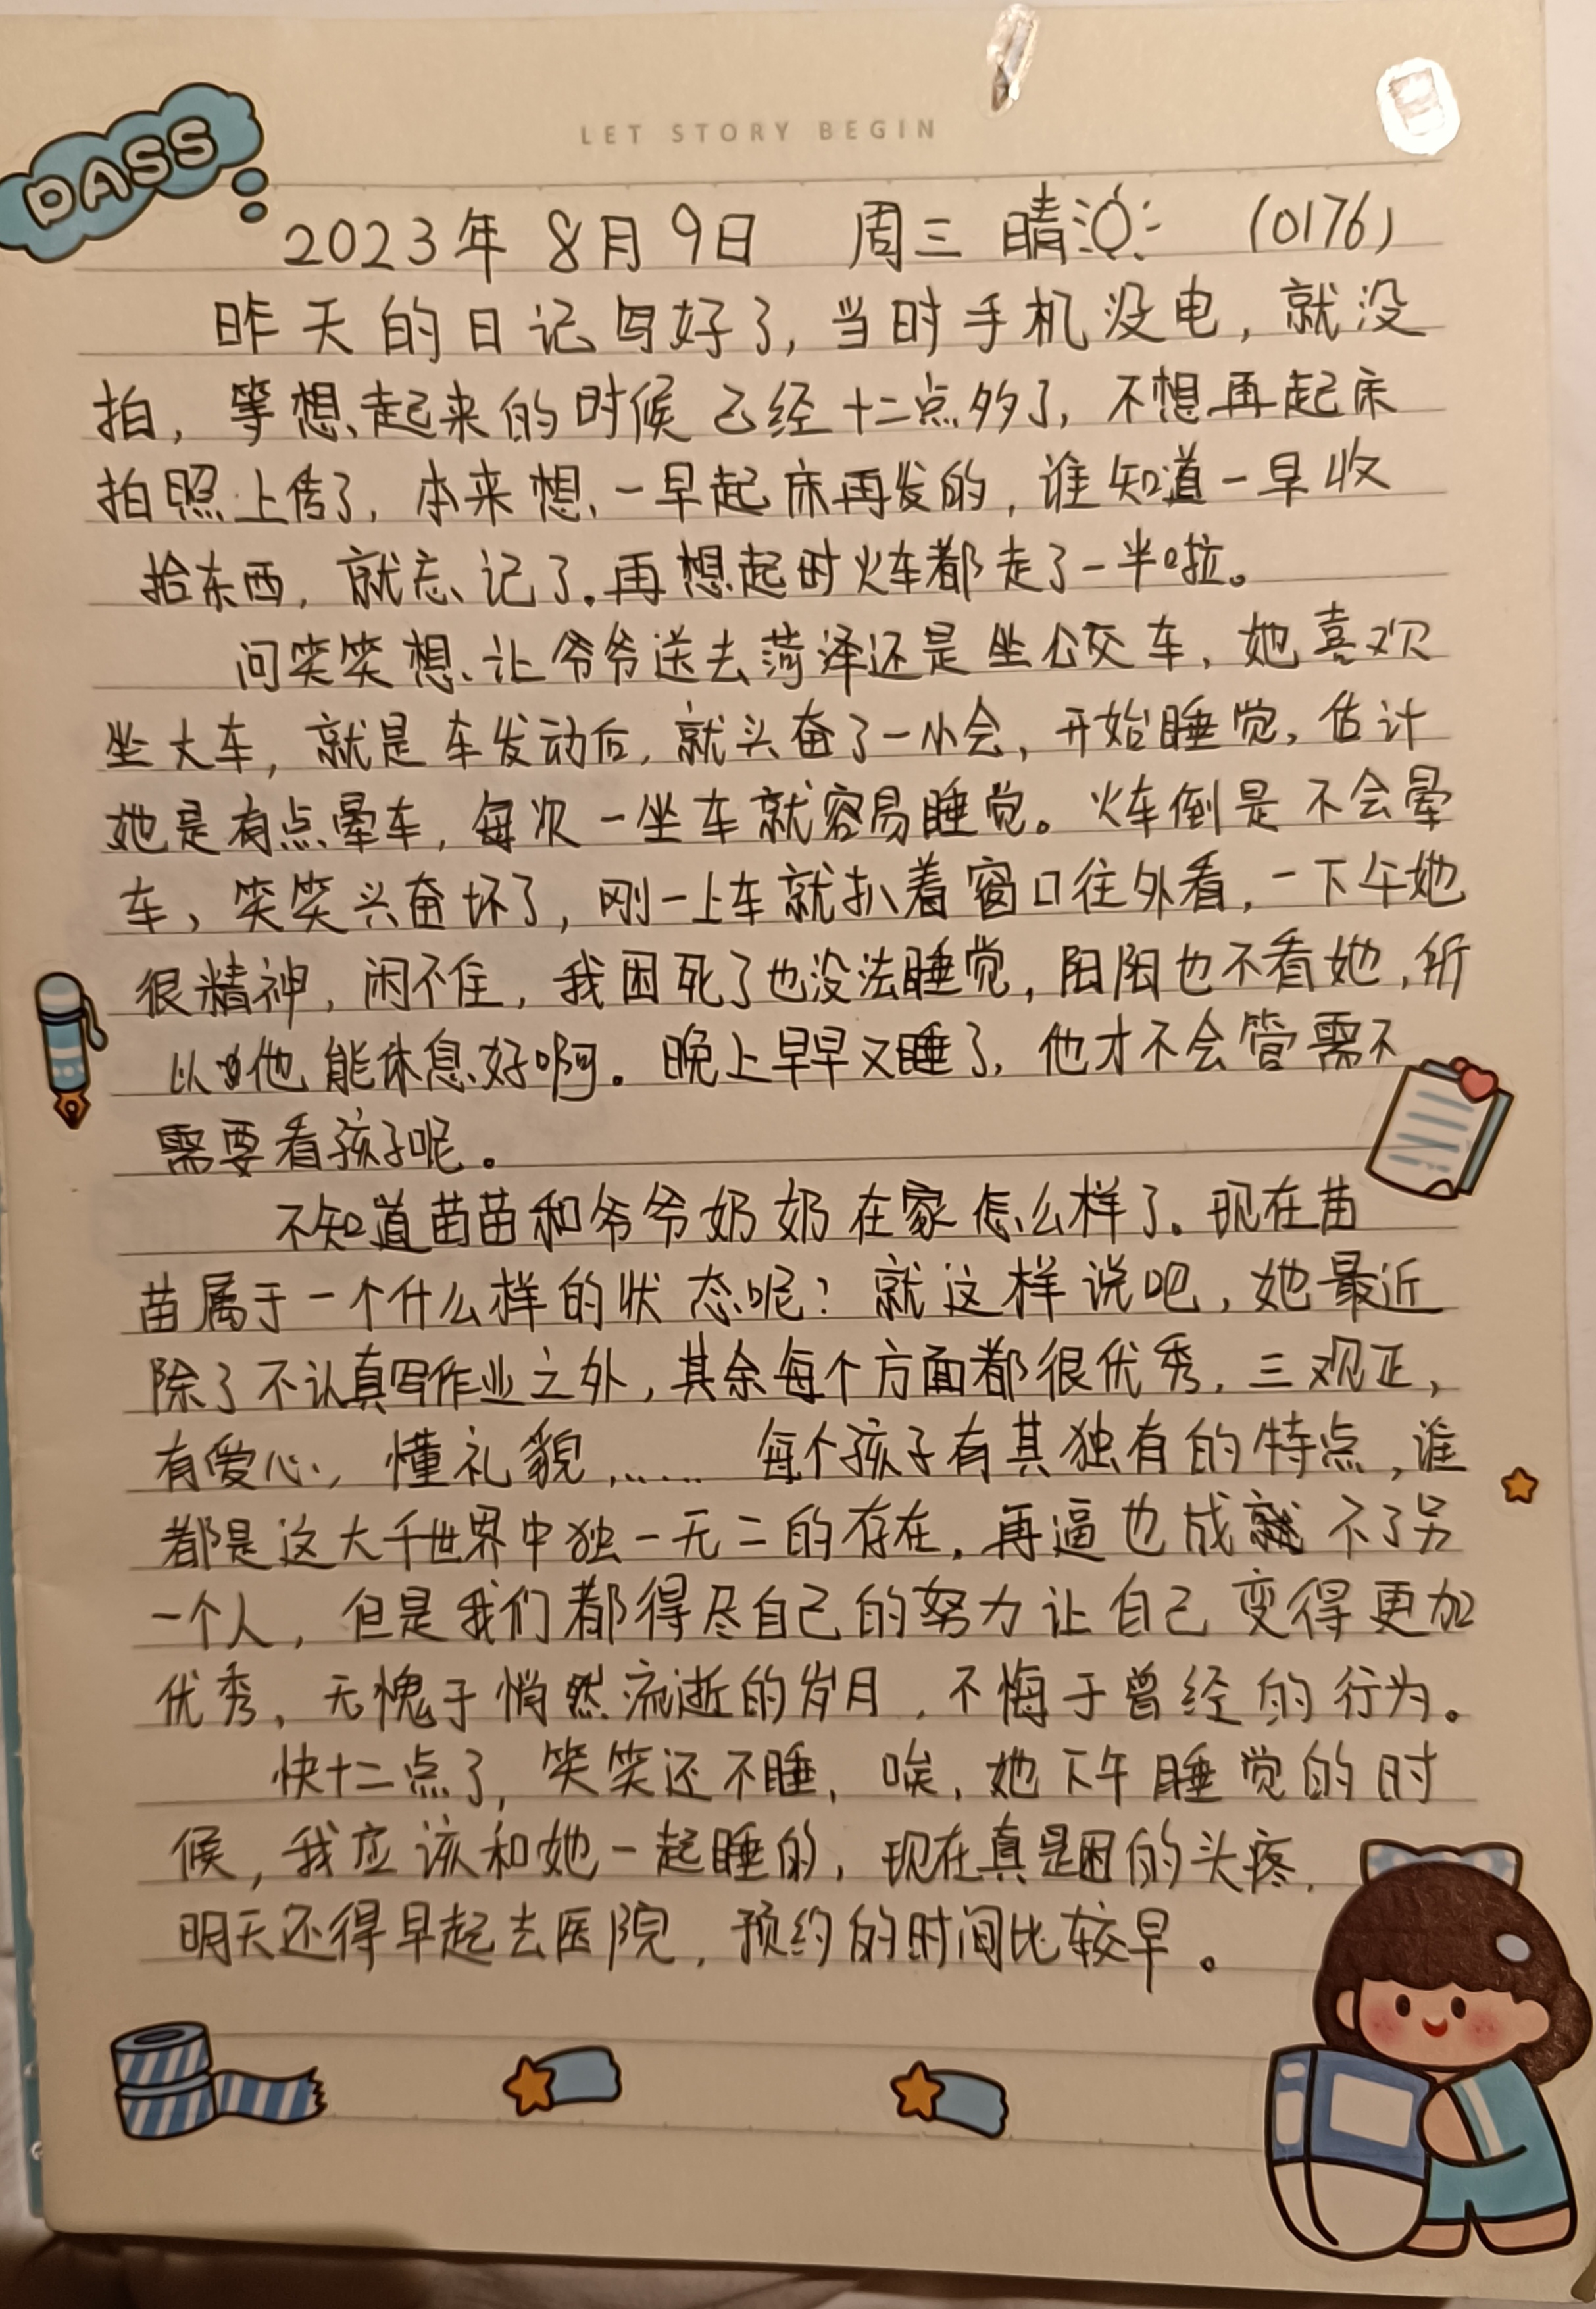 LET STORY BEGIN
PASS
2023年8月9日 周三 晴 (0176)
昨天的日记写好了,当时手机没电,就没
拍,等想起来的时候已经十二点多了,不想再起床
拍照上传了,本来想一早起床再发的,谁知道一早收
拾东西,就忘记了。再想起时火车都走了一半啦。
问笑笑想让爷爷送去菏泽还是坐公交车,她喜欢
坐大车,就是车发动后,就兴奋了一小会,开始睡觉,估计
她是有点晕车,每次一坐车就容易睡觉。火车倒是不会晕
车,笑笑兴奋坏了,刚一上车就扒着窗口往外看,一下午她
很精神,闲不住,我困死了也没法睡觉,阳阳也不看她,所
以他能休息好啊。晚上早早又睡了,他才不会管需不
需要看孩子呢。
不知道苗苗和爷爷奶奶在家怎么样了。现在苗
苗属于一个什么样的状态呢?就这样说吧,她最近
除了不认真写作业之外,其余每个方面都很优秀,三观正,
有爱心,懂礼貌,…… 每个孩子有其独有的特点,谁
都是这大千世界中独一无二的存在,再逼也成就不了另
一个人,但是我们都得尽自己的努力让自己变得更加
优秀,无愧于悄然流逝的岁月,不悔于曾经的行为。
快十二点了,笑笑还不睡,唉,她下午睡觉的时
候,我应该和她一起睡的,现在真是困的头疼,
明天还得早起去医院,预约的时间比较早。